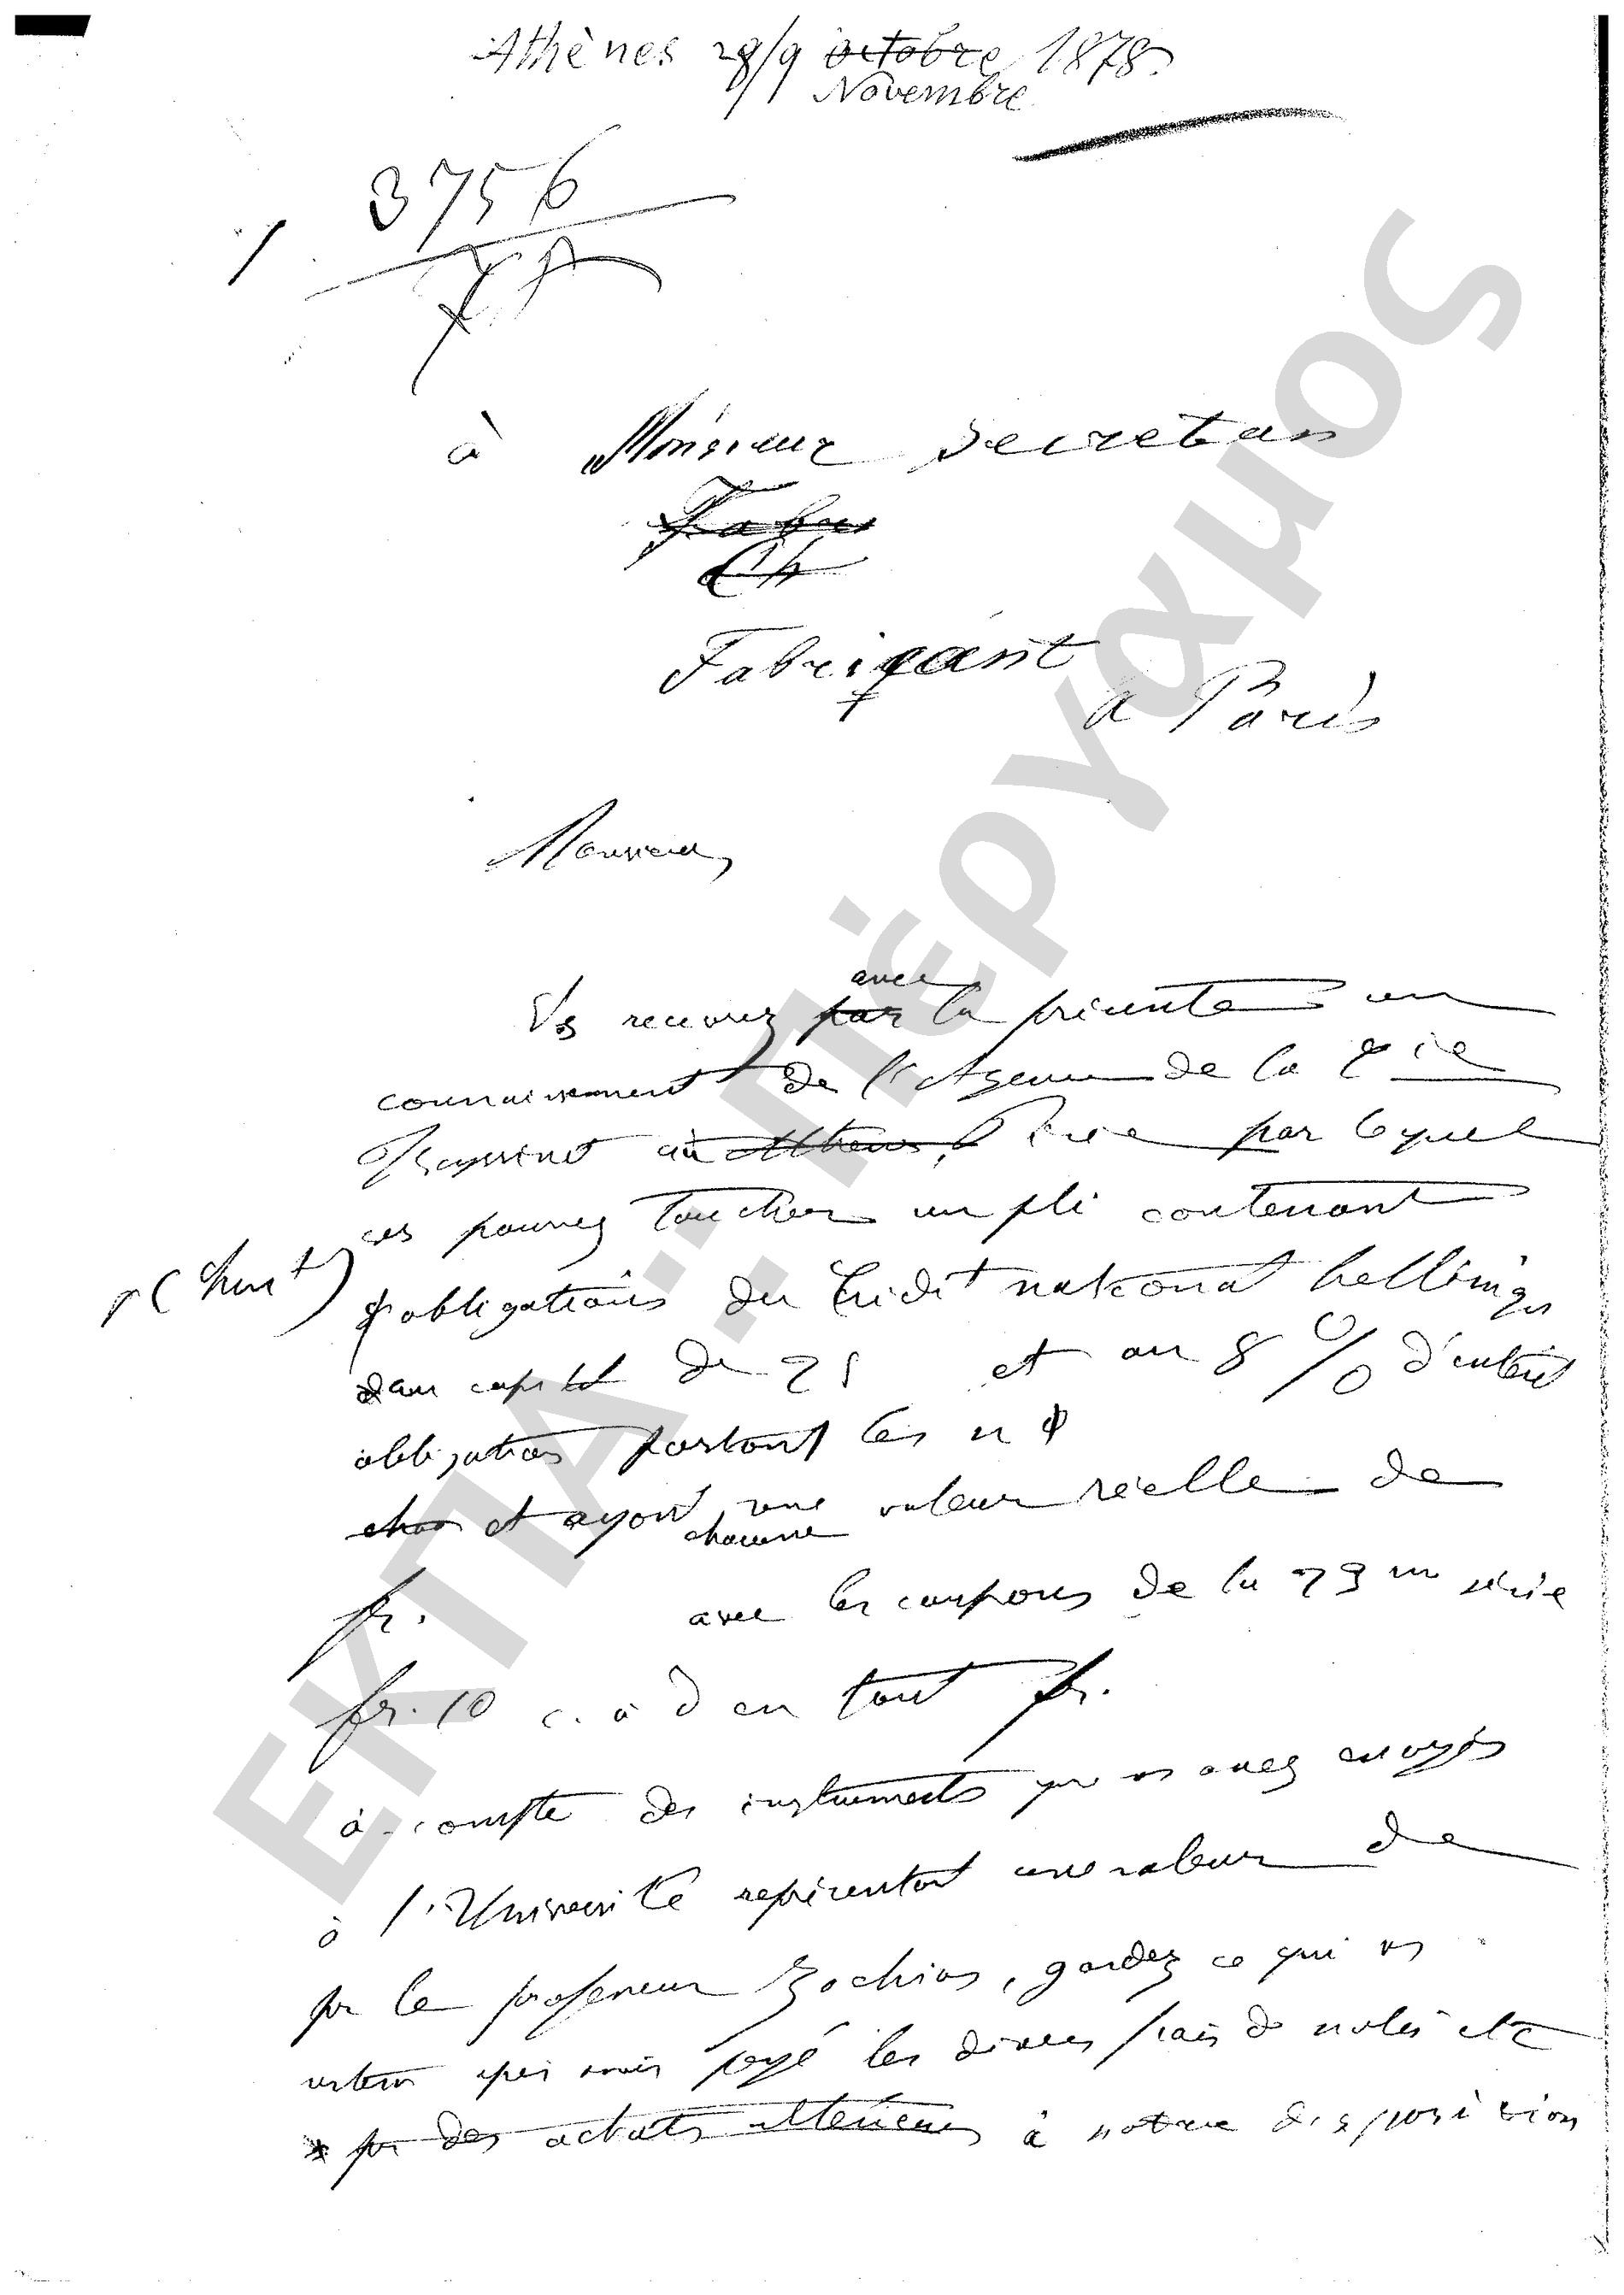 Athènes 28/9 octobre 1878
Novembre
3756
à Monsieur Secretan
Fabri
Ch
Fabriquant
à Paris
Monsieur,
avec
Vs recevrez par la présente un
connaissement de l'Agence de la Cie
Fraissinet à Athènes, Pirée par lequel
vs pourrez toucher un pli contenant
(huit)
obligations du Crédit national hellénique
capital de 25 et au 8 % d'intérêt
obligations portant les nos
chac et ayant une valeur réelle de
chacune
fr. avec les coupons de la 23me série
fr. 10 c. à d en tout fr.
à compte des instruments que vs avez envoyés
à l'Université représentant une valeur de
pr le professeur Zochios, gardez ce qui vs
restera après avoir payé les divers frais de notes etc
pr des achats ultérieurs à notre disposition
ΕΚΠΑ... Πέργαμος